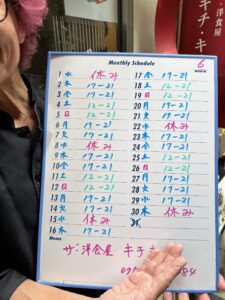 洋食屋
キチ・キ
Monthly Schedule
6
MONTH
1 水 休み
2 木 17-21
3 金 17-21
4 土 12-21
5 日 12-21
6 月 17-21
7 火 17-21
8 水 休み
9 木 17-21
10 金 17-21
11 土 12-21
12 日 12-21
13 月 17-21
14 火 17-21
15 水 休み
16 木 17-21
17 金 17-21
18 土 12-21
19 日 12-21
20 月 17-21
21 火 17-21
22 水 休み
23 木 17-21
24 金 17-21
25 土 12-21
26 日 12-21
27 月 17-21
28 火 17-21
29 水 17-21
30 木 休み
31
Memo
ザ・洋食屋 キチ